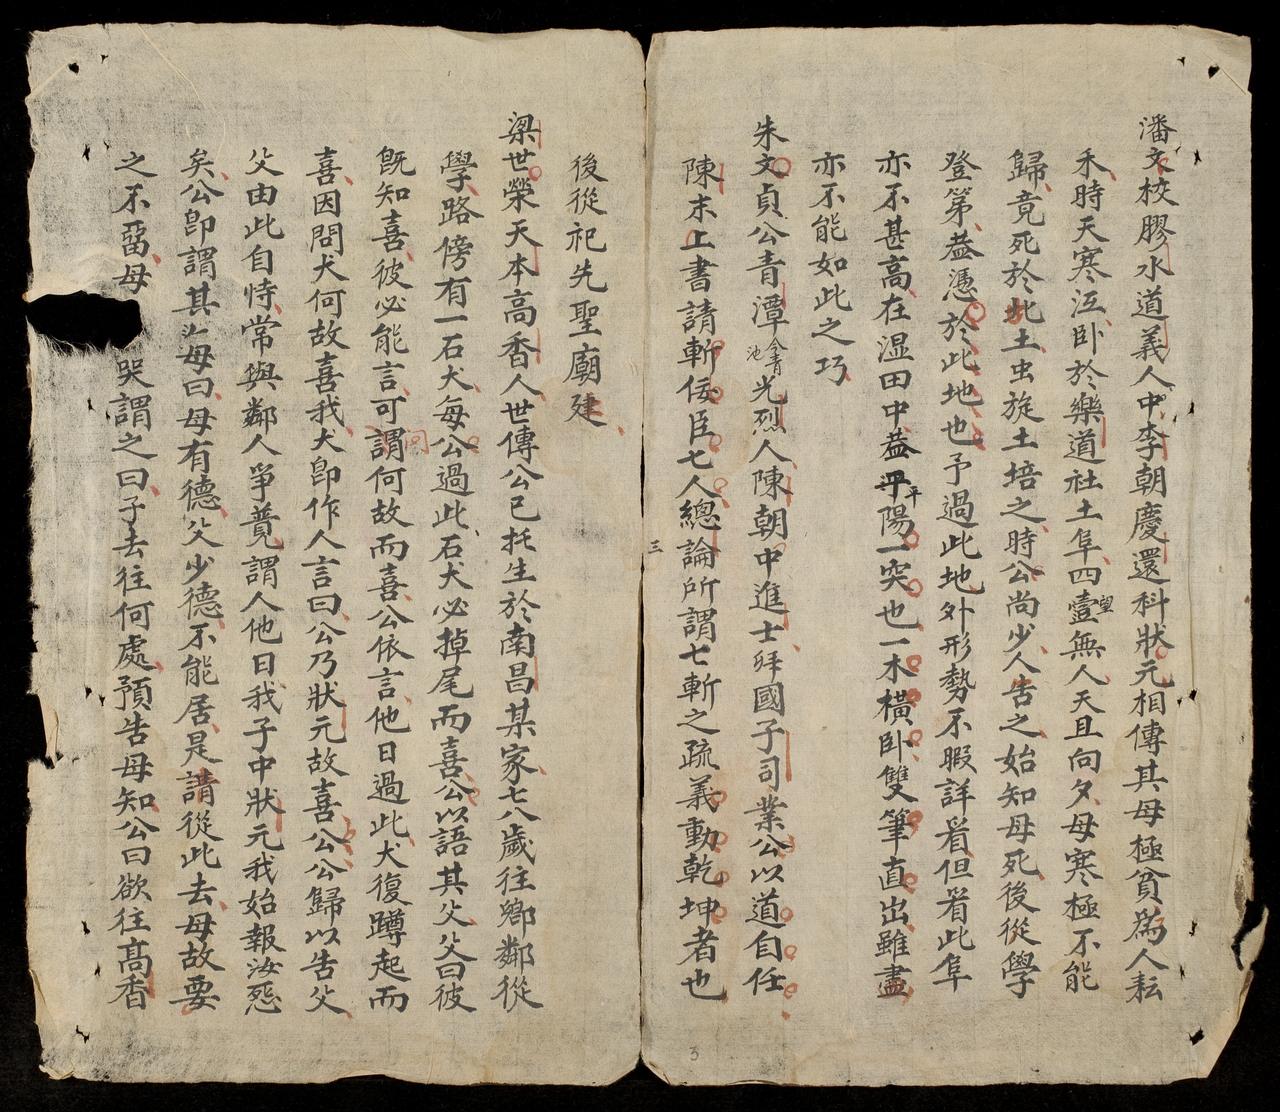 潘文校膠水道義人中李朝慶還科狀元相傳其母極貧爲人耘
禾時天寒沍臥於樂道社土阜四壹望無人天且向夕母寒極不能
歸竟死於此土虫旋土培之時公尚少人吿之始知母死後從學
登第葢憑於此地也予過此地外形勢不暇詳看但看此阜
亦不甚高在湿田中葢平平陽一突也一木橫臥雙筆直出雖畫
亦不能如此之巧
朱文貞公青潭今青池光烈人陳朝中進士拜國子司業公以道自任
陳末上書請斬佞臣七人總論所謂七斬之疏義動乾坤者也
三
3
後從祀先聖廟廷
梁世榮天本高香人世傳公已托生於南昌某家七八歲往鄉鄰從
學路傍有一石犬每公過此石犬必掉尾而喜公以語其父父曰彼
旣知喜彼必能言可謂問何故而喜公依言他日過此犬復蹲起而
喜因問犬何故喜我犬卽作人言曰公乃狀元故喜公公歸以告父
父由此自恃常與鄰人爭竟謂人他日我子中狀元我始報汝怨
矣公卽謂其母曰母有德父少德不能居是請從此去母故要
之不畱母 哭謂之曰子去往何處預告母知公曰欲往髙香